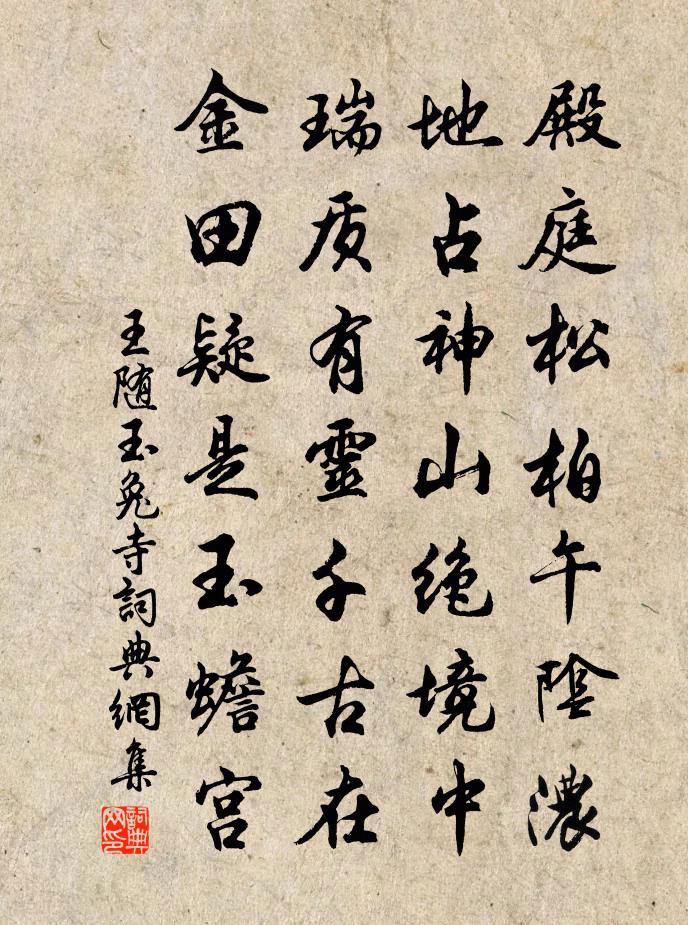 殿庭松柏午陰濃
地占神山絶境中
瑞质有靈千古在
金田疑是玉蟾宮
王随玉兔寺詞典網集
詞典網印